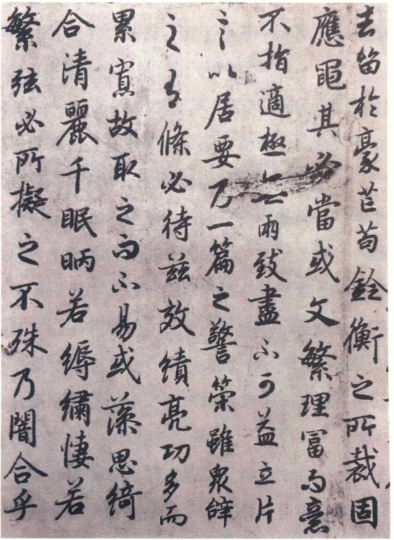 去留於豪芒苟銓衡之所裁固
應繩其必當或文繁理冨而意
不指適極无兩致盡不可益立片
言以居要乃一篇之警策雖衆辭
之有條必待茲效績亮功多而
累寡故取之而不易或藻思綺
合清麗千眠昞若縟繡悽若
繁弦必所擬之不殊乃闇合乎